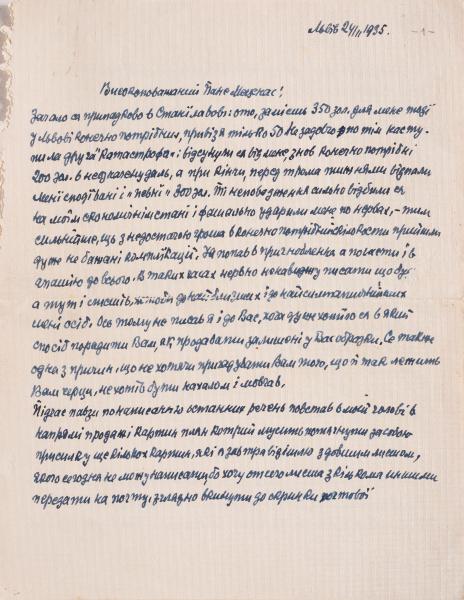 Львів 24/II 1935. -1-
Високоповажаний Пане Меценас!
Зачалося припадково в Станіславові: ото, замісць 350 зол. для мене тоді
у Львові конечно потрібних, привіз я тілько 50. Незадовго по тім насту-
пила друга "катастрофа": відсунулися від мене, знов конечно потрібні
200 зол. в неозначену даль, а при кінци, перед трома тижнями відпали
мені сподівані і "певні" 300 зол. Ті неповодження сильно відбилися
на моїм економічнім стані і фатально ударили мене по нервах, – тим
сильнійше, що з недостачою гроша в конечно потрібній скількости прийшли
дуже не бажані комплікації. Я попав в пригноблення а почасти і в
апатію до всього. В таких часах нервно ненавиджу писати що будь
а тут і листів, то до найблизших і до найсимпатичнійших
мені осіб. Ось тому не писав я і до Вас, хоча дуже хотілося в який
спосіб порадити Вам, як продавати залишені у Вас образки. Се також
одна з причин, що не хотячи пригадувати Вам того, що й так лежить
Вам на серци, не хотів бути нахалом і мовчав.
Підчас павзи по написанню останних речень повстав в моїй голові в
напрямі продажі картин плян котрий мусить потягнути за собою
присилку ще кількох картин, які я завтра відішлю з довшим листом,
якого сегодня не можу написати, бо хочу отсего листа з кількома иншими
передати на почту, зглядно вкинути до скринки почтової